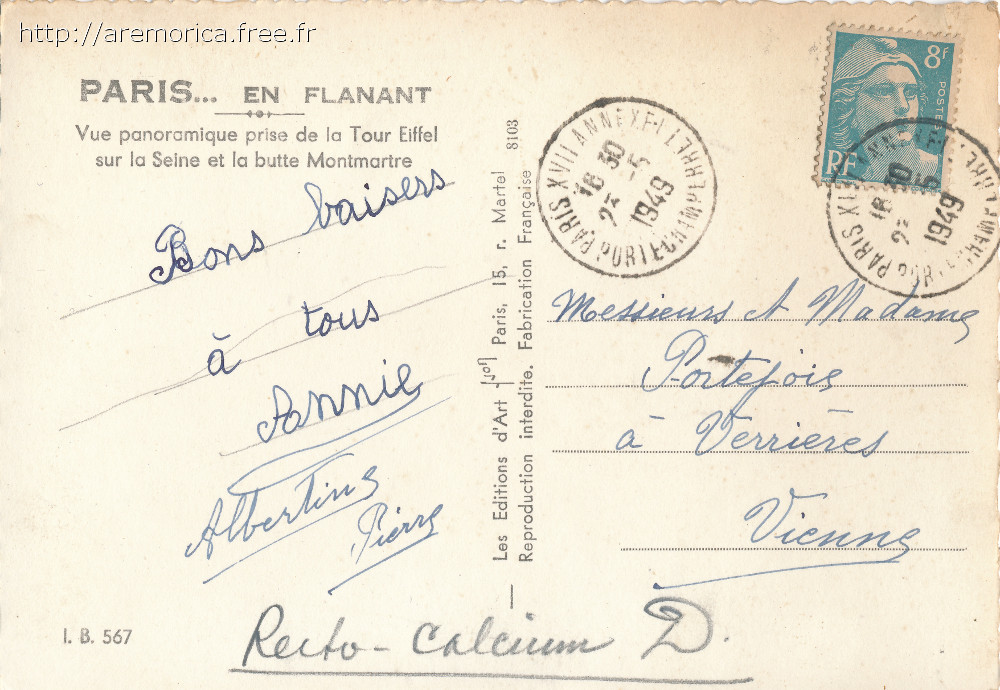 http://aremorica.free.fr
PARIS... EN FLANANT
Vue panoramique prise de la Tour Eiffel
sur la Seine et la butte Montmartre
Bons baisers
à tous
Annie
Albertine
Pierre
I. B. 567
Recto-Calcium D.
Les Editions d'Art Yvon Paris, 15, r. Martel
Reproduction interdite. Fabrication Française
8103
PARIS XVIII ANNEXE
18 30
1949
8F
POSTES
RF
18 30
1949
Messieurs et Madame
Portefois
à Verrières
Vienne